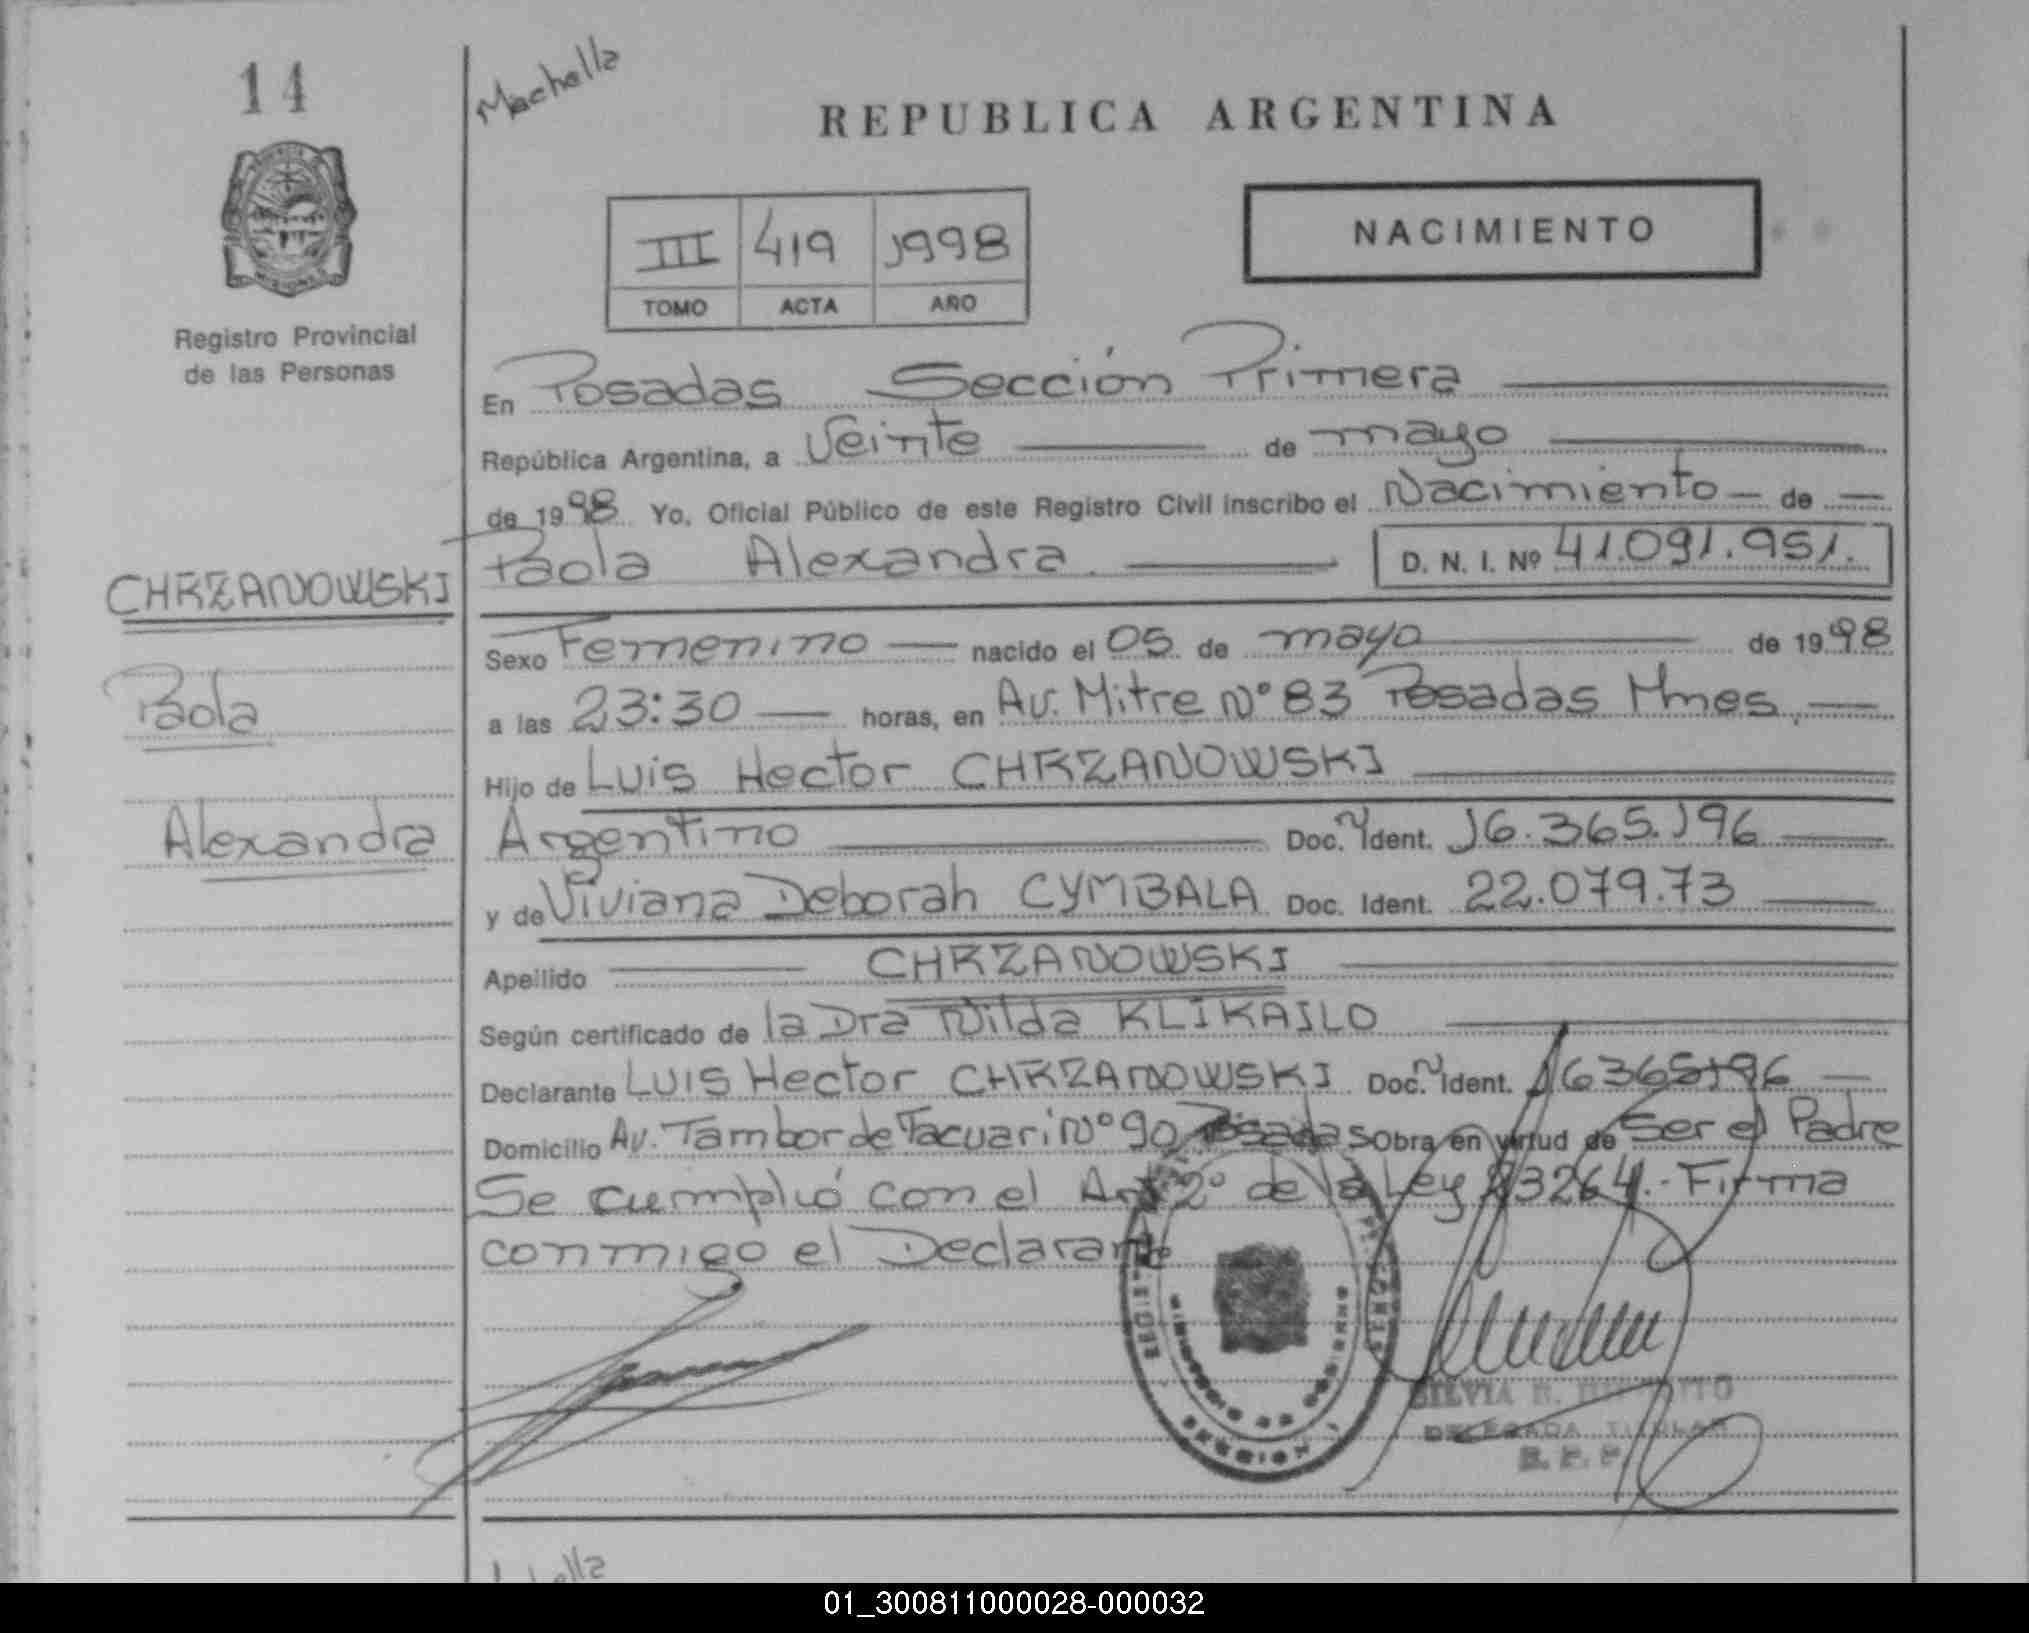 14
Machella
REPUBLICA ARGENTINA
NACIMIENTO
III 419 1998
TOMO ACTA AÑO
Registro Provincial
de las Personas
En Posadas Sección Primera
República Argentina, a Veinte de mayo
de 1998 Yo, Oficial Público de este Registro Civil inscribo el Nacimiento de
CHRZANOWSKI
Paola Alexandra D. N. I. Nº 41.091.951.
Sexo Femenino nacido el 05 de mayo de 1998
Paola
a las 23:30 horas, en Av. Mitre Nº 83 Posadas Mnes.
Hijo de Luis Hector CHRZANOWSKI
Alexandra
Argentino Doc. N Ident. 16.365.196
y de Viviana Deborah CYMBALA Doc. Ident. 22.079.73
Apellido CHRZANOWSKI
Según certificado de la Dra Nilda KLIKAILO
Declarante LUIS Hector CHRZANOWSKI Doc. N Ident. 16365196
Domicilio Av. Tambor de Tacuari Nº 90 Posadas Obra en virtud de Ser el Padre
Se cumplió con el Art 2º de la Ley 23264.- Firma
conmigo el Declarante
SILVIA
DELEGADA TITULAR
R. P. P.
01_300811000028-000032